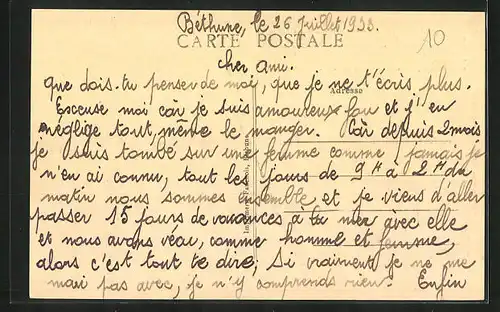 Béthune, le 26 Juillet 1933.
10
CARTE POSTALE
Cher ami.
que dois-tu penser de moi, que je ne t'écris plus.
Adresse
Excuse moi car je suis amoureux fou et j'en
néglige tout, même le manger. Car depuis 2 mois
je suis tombé sur une femme comme jamais je
n'en ai connu, tout les jours de 9H à 2H du
matin nous sommes ensemble, et je viens d'aller
passer 15 jours de vacances à la mer avec elle
et nous avons véau, comme homme et femme,
alors c'est tout te dire; Si vraiment je ne me
mari pas avec, je n'y comprends rien. Enfin